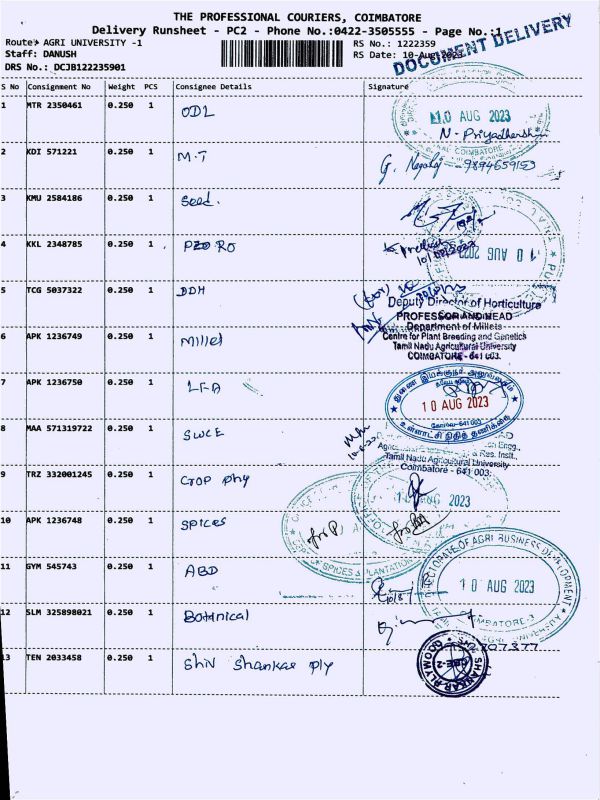 THE PROFESSIONAL COURIERS, COIMBATORE
Delivery Runsheet - PC2 - Phone No.:0422-3505555 - Page No.:1
DOCUMENT DELIVERY
Route: AGRI UNIVERSITY -1
RS No.: 1222359
Staff: DANUSH
RS Date: 10-Aug-2023
DRS No.: DCJB122235901
S No Consignment No Weight PCS Consignee Details Signature
1 MTR 2350461 0.250 1 ODL
10 AUG 2023
N. Priyadharshini
COIMBATORE
2 KDI 571221 0.250 1 M.T G. Nagaraj 9894659153
3 KMU 2584186 0.250 1 Seed.
4 KKL 2348785 0.250 1 PRO RO
10 AUG 2023
5 TCG 5037322 0.250 1 DDH
Deputy Director of Horticulture
PROFESSOR AND HEAD
Department of Millets
6 APK 1236749 0.250 1 Millel
Centre for Plant Breeding and Genetics
Tamil Nadu Agricultural University
COIMBATORE - 641 003.
7 APK 1236750 0.250 1 LFA
துணை இயக்குநர் அலுவலகம்
10 AUG 2023
கோவை-641 003
உள்ளாட்சி நிதித் தணிக்கை
8 MAA 571319722 0.250 1 SWCE
Tamil Nadu Agricultural University
Coimbatore - 641 003.
9 TRZ 332001245 0.250 1 Crop phy
10 AUG 2023
10 APK 1236748 0.250 1 Spices
SPICES & PLANTATION
11 GYM 545743 0.250 1 ABD
DIRECTORATE OF AGRI BUSINESS DEVELOPMENT
10 AUG 2023
12 SLM 325898021 0.250 1 Botanical
COIMBATORE-3
13 TEN 2033458 0.250 1 Shiv Shankar ply
SHANKAR PLYWOOD
CBE-2